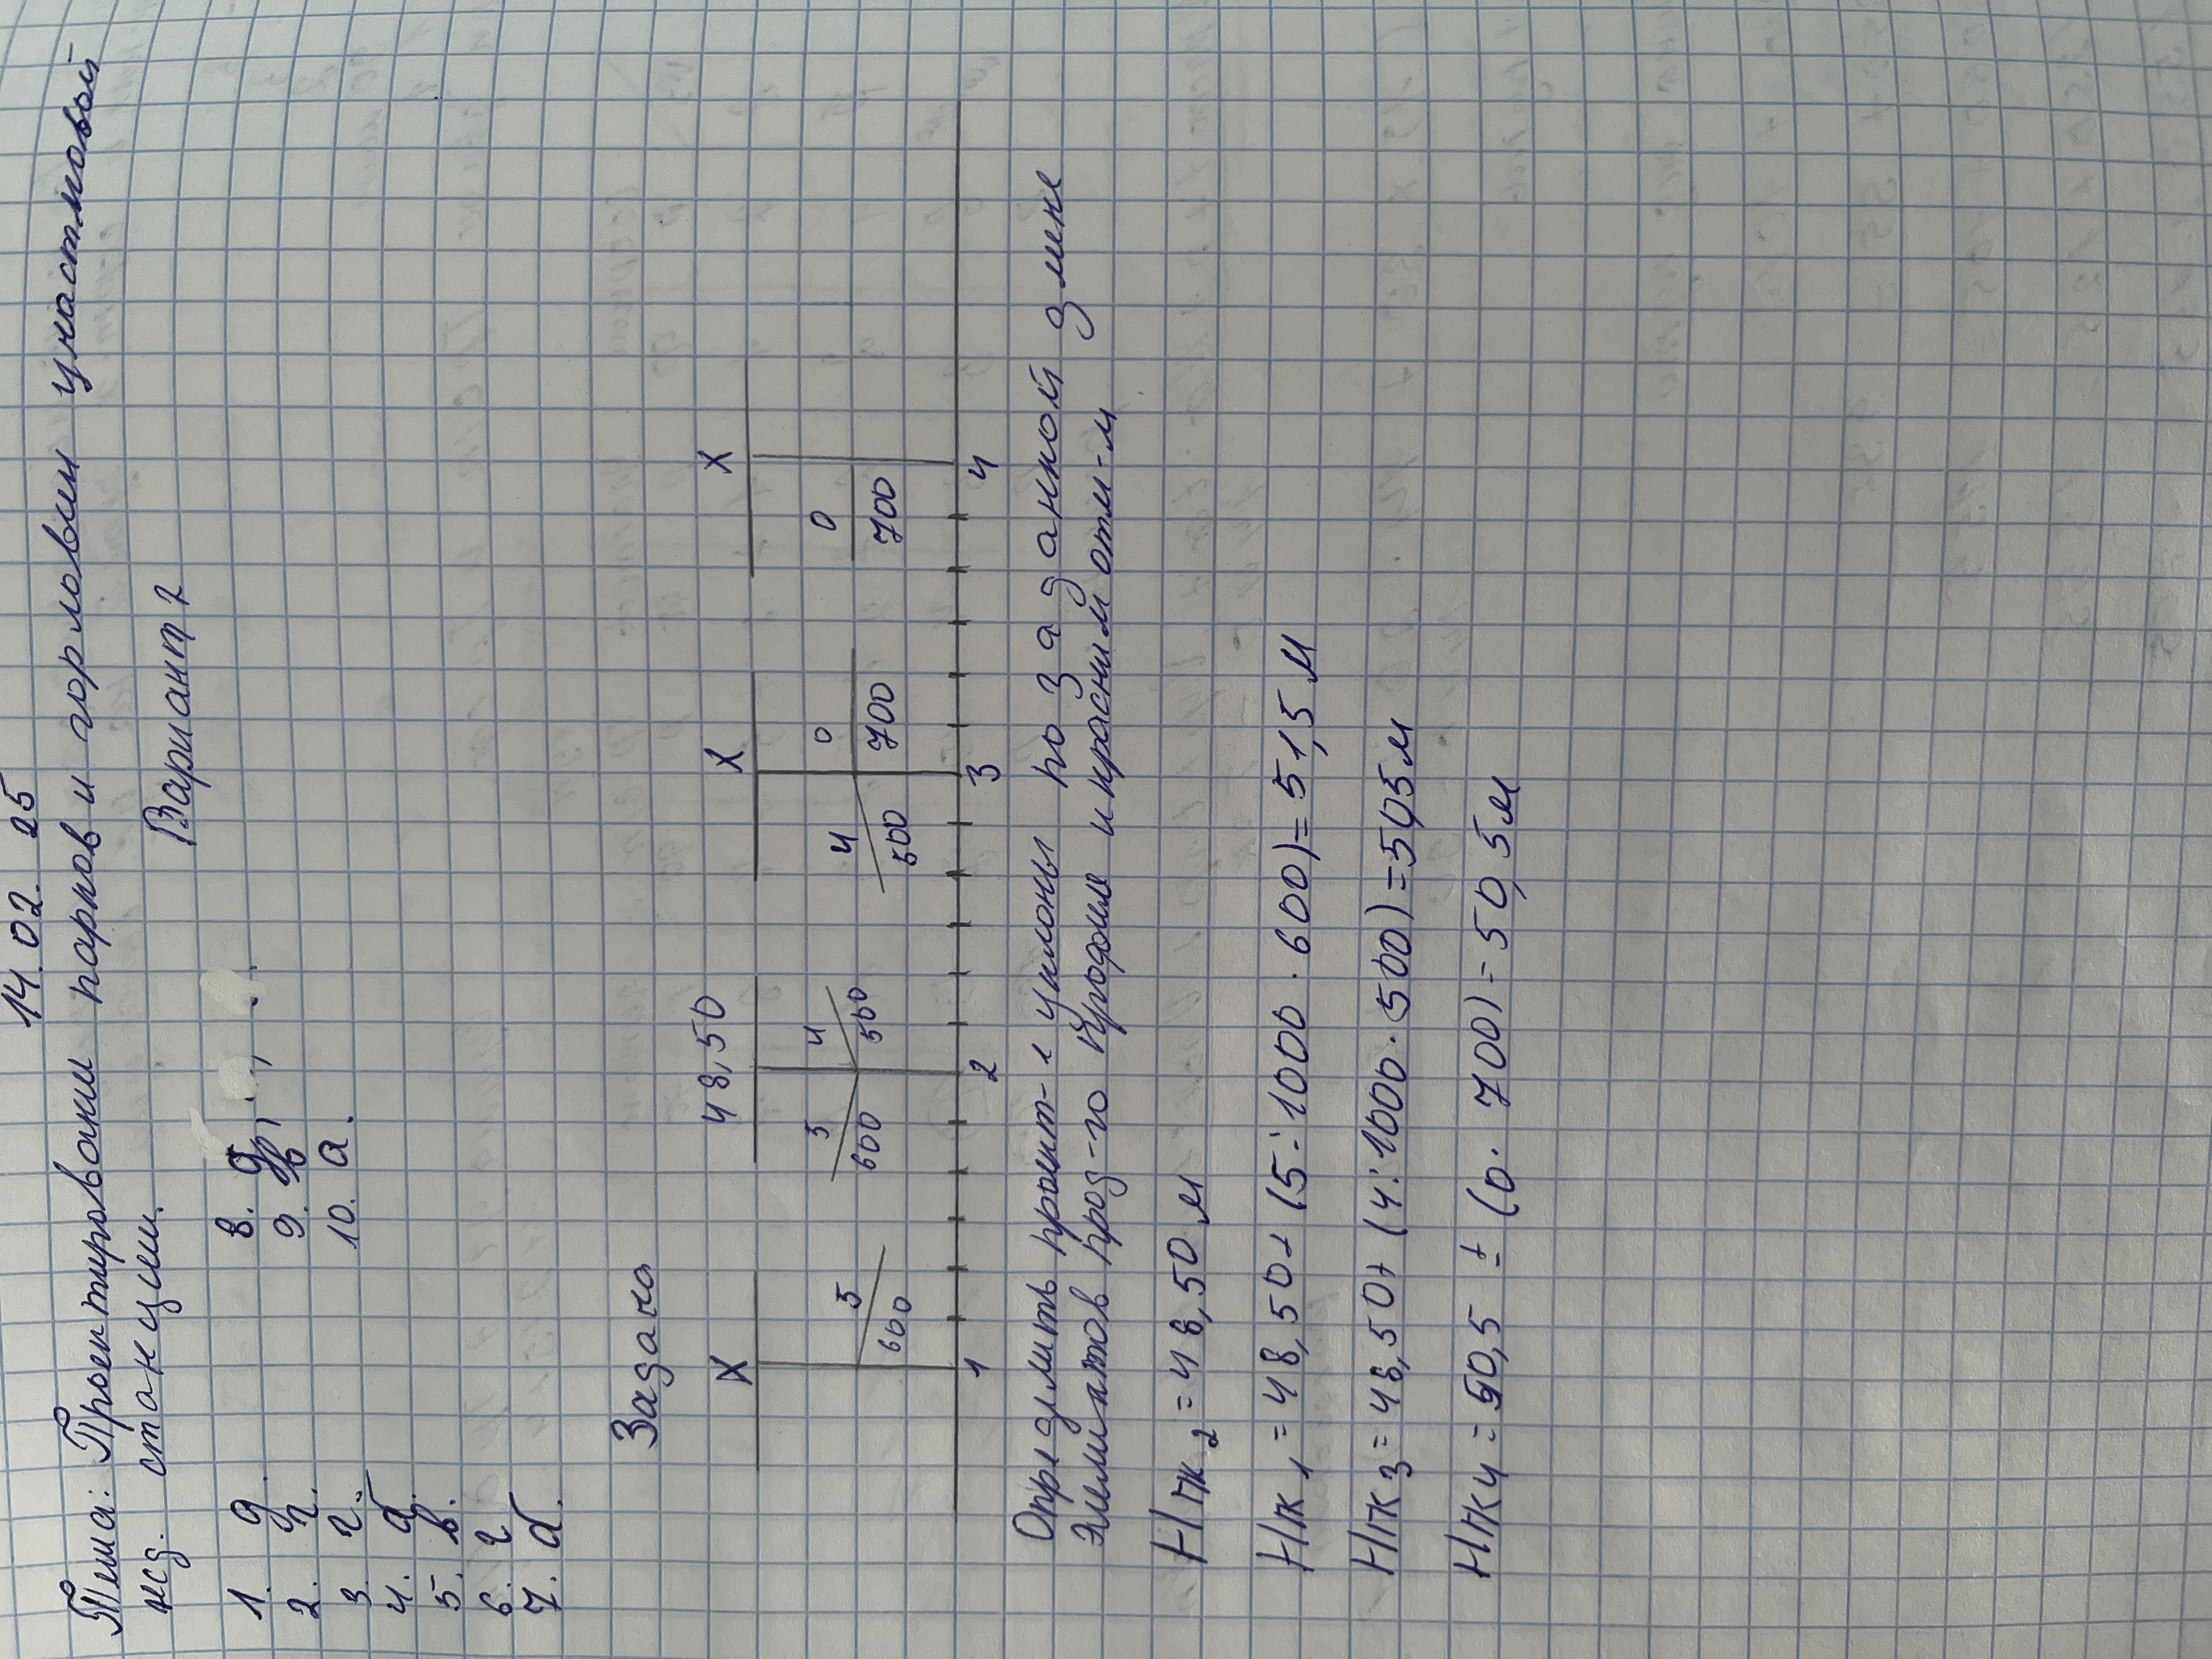 14.02.25
Тема: Проектировани парков и горловин участковой
жд. станции.
Вариант 2
1. д
2. г.
3. г.
4. б
5. в.
6. г
7. б.
8. д
9. в
10. а.
Задача
X 48,50 X X
5 5 4 4 0 0
600 600 500 500 700 700
1 2 3 4
Определить проект-е уклоны по заданной длине
элементов прод-го профиля и красним отм-м
Нпк2 = 48,50 м
Нпк1 = 48,50+ (5÷1000 · 600) = 51,5 м
Нпк3 = 48,50+ (4:1000 · 500) = 50,5 м
Нпк4 = 50,5 ± (0 · 700) = 50,5 м